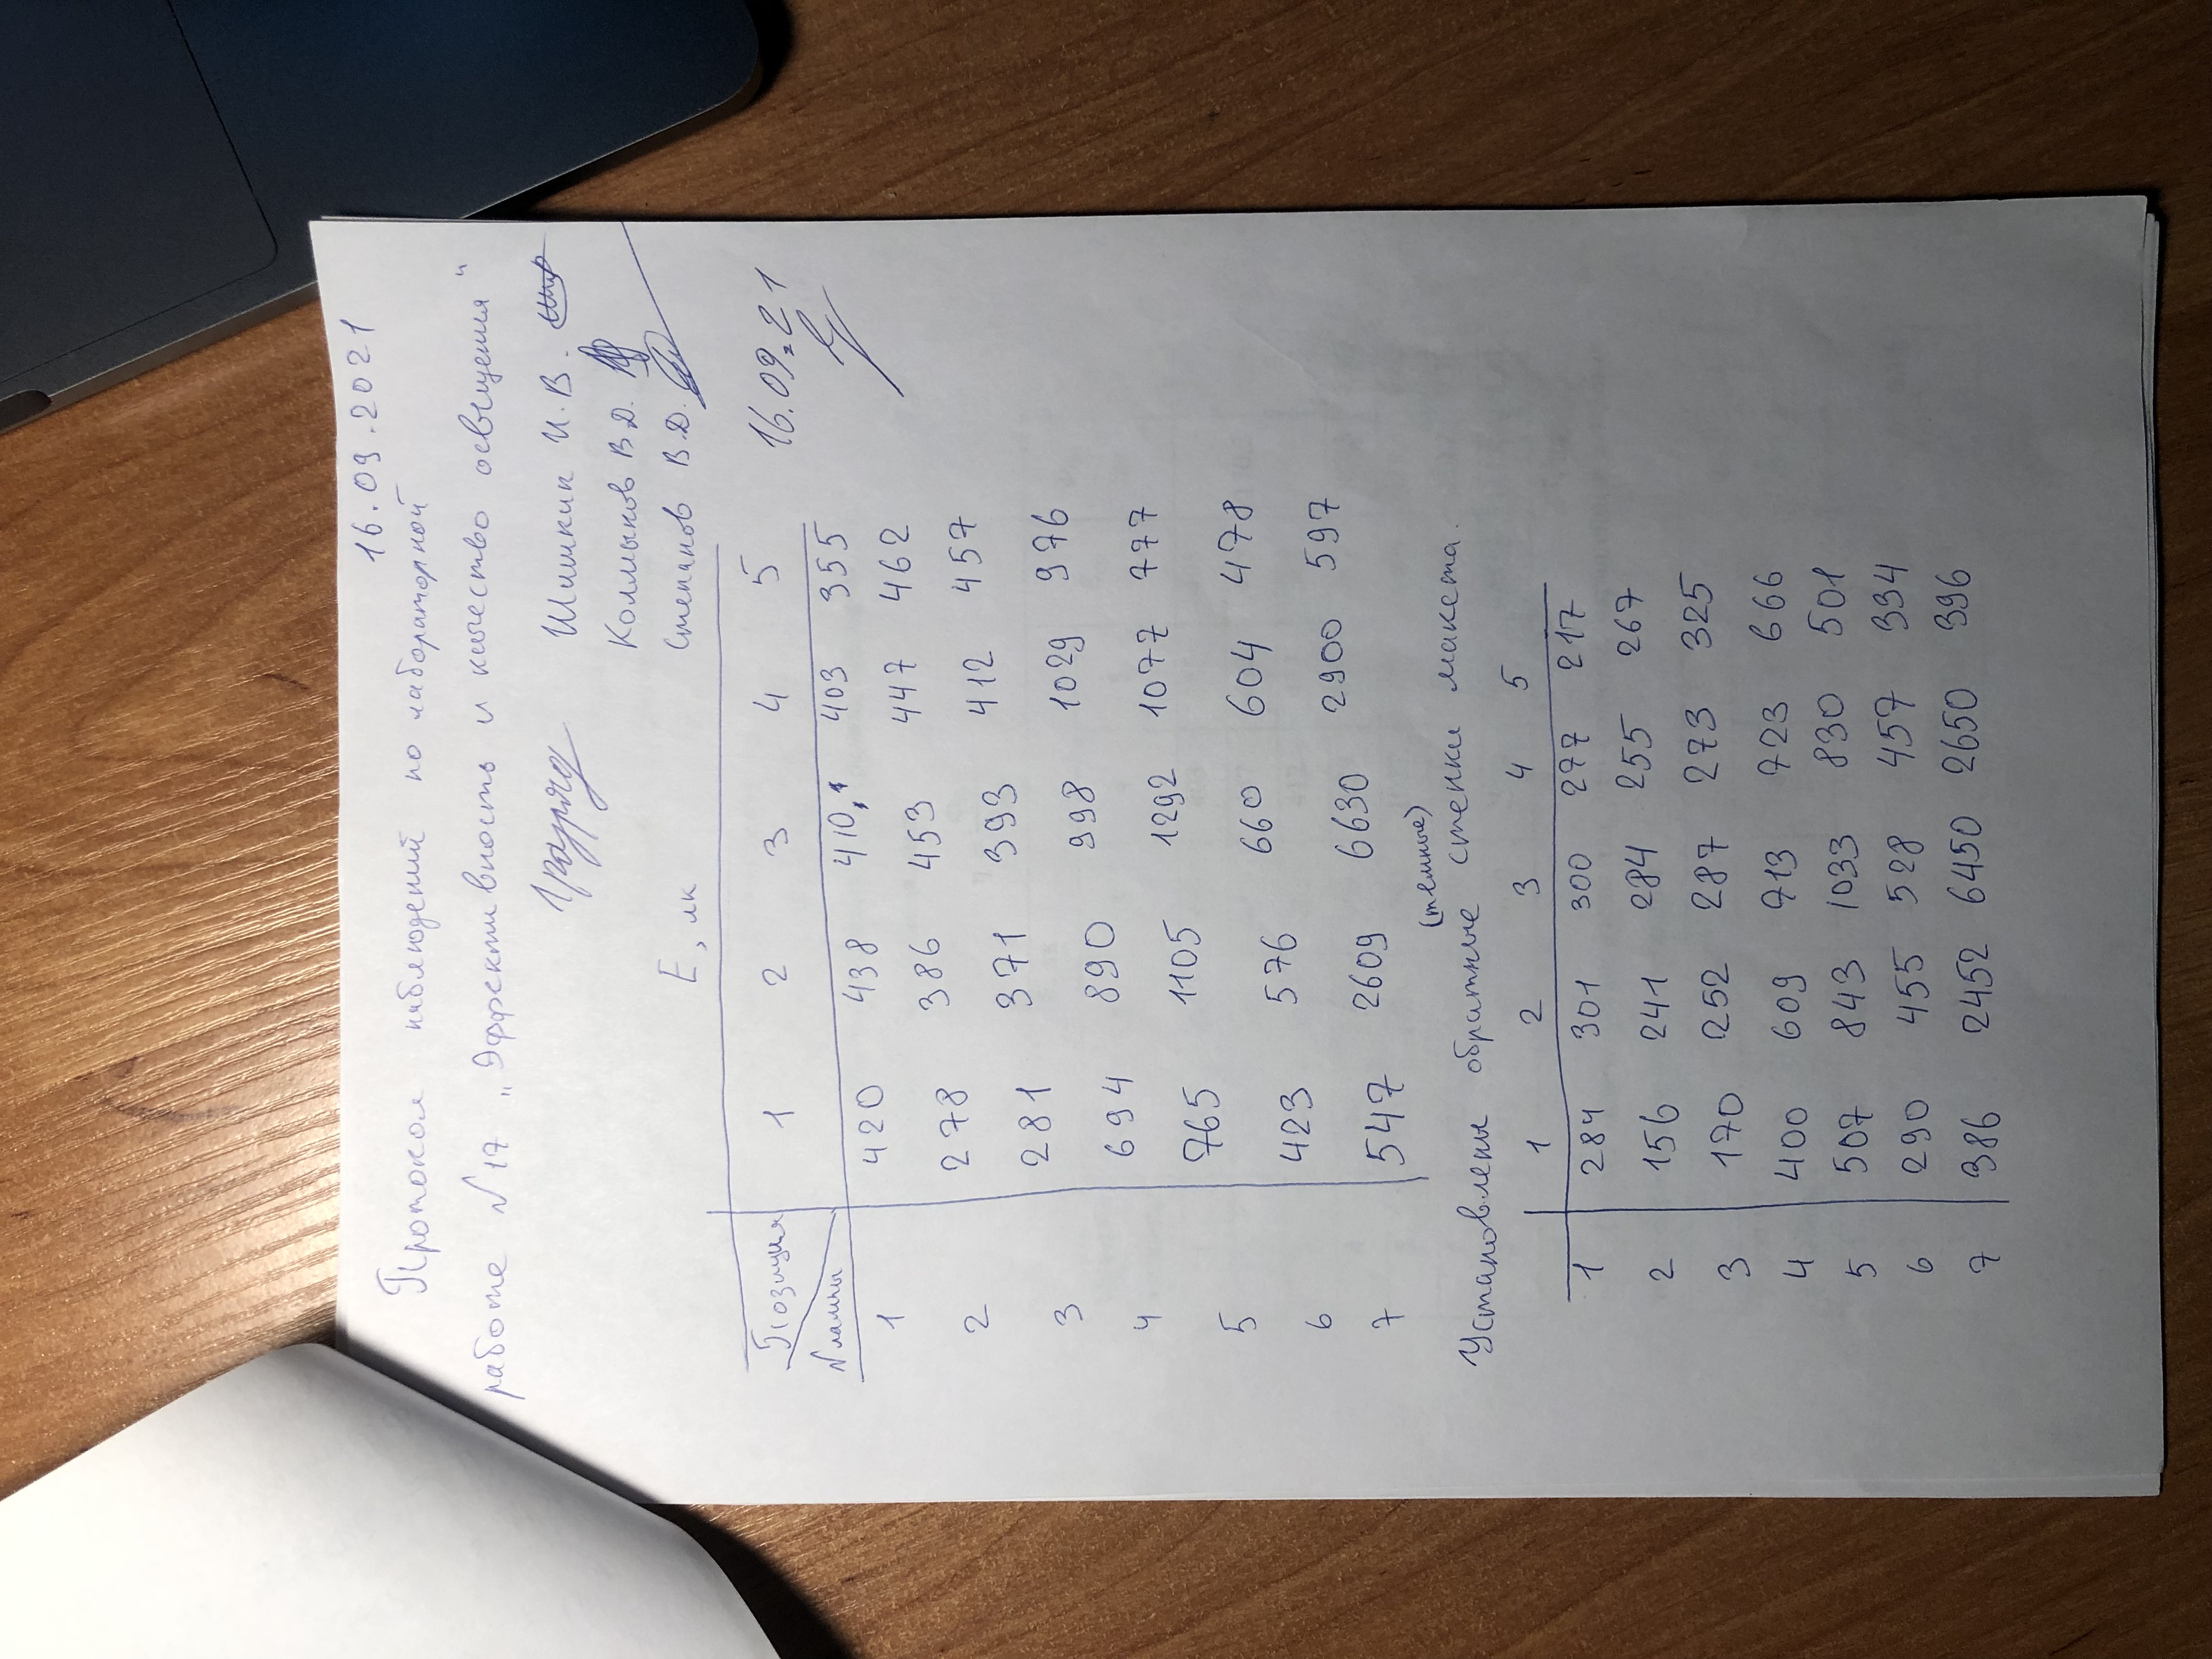 16.09.2021
Протокол наблюдений по лабораторной
работе №17 „Эффективность и качество освещения“
1 разряд Шишкин И.В.
Колмыков В.Д.
Степанов В.Д.
Е, лк
Позиция 1 2 3 4 5 16.09.21
№лампы
1 420 438 410, 403 355
2 278 386 453 447 462
3 281 371 393 412 457
4 694 890 998 1029 976
5 765 1105 1292 1077 777
6 423 576 660 604 478
7 547 2609 6630 2900 597
(темные)
Установлены обратные стенки макета.
1 2 3 4 5
1 284 301 300 277 217
2 156 241 284 255 267
3 170 252 287 273 325
4 400 609 713 723 666
5 507 843 1033 830 501
6 290 455 528 457 334
7 386 2452 6450 2650 396